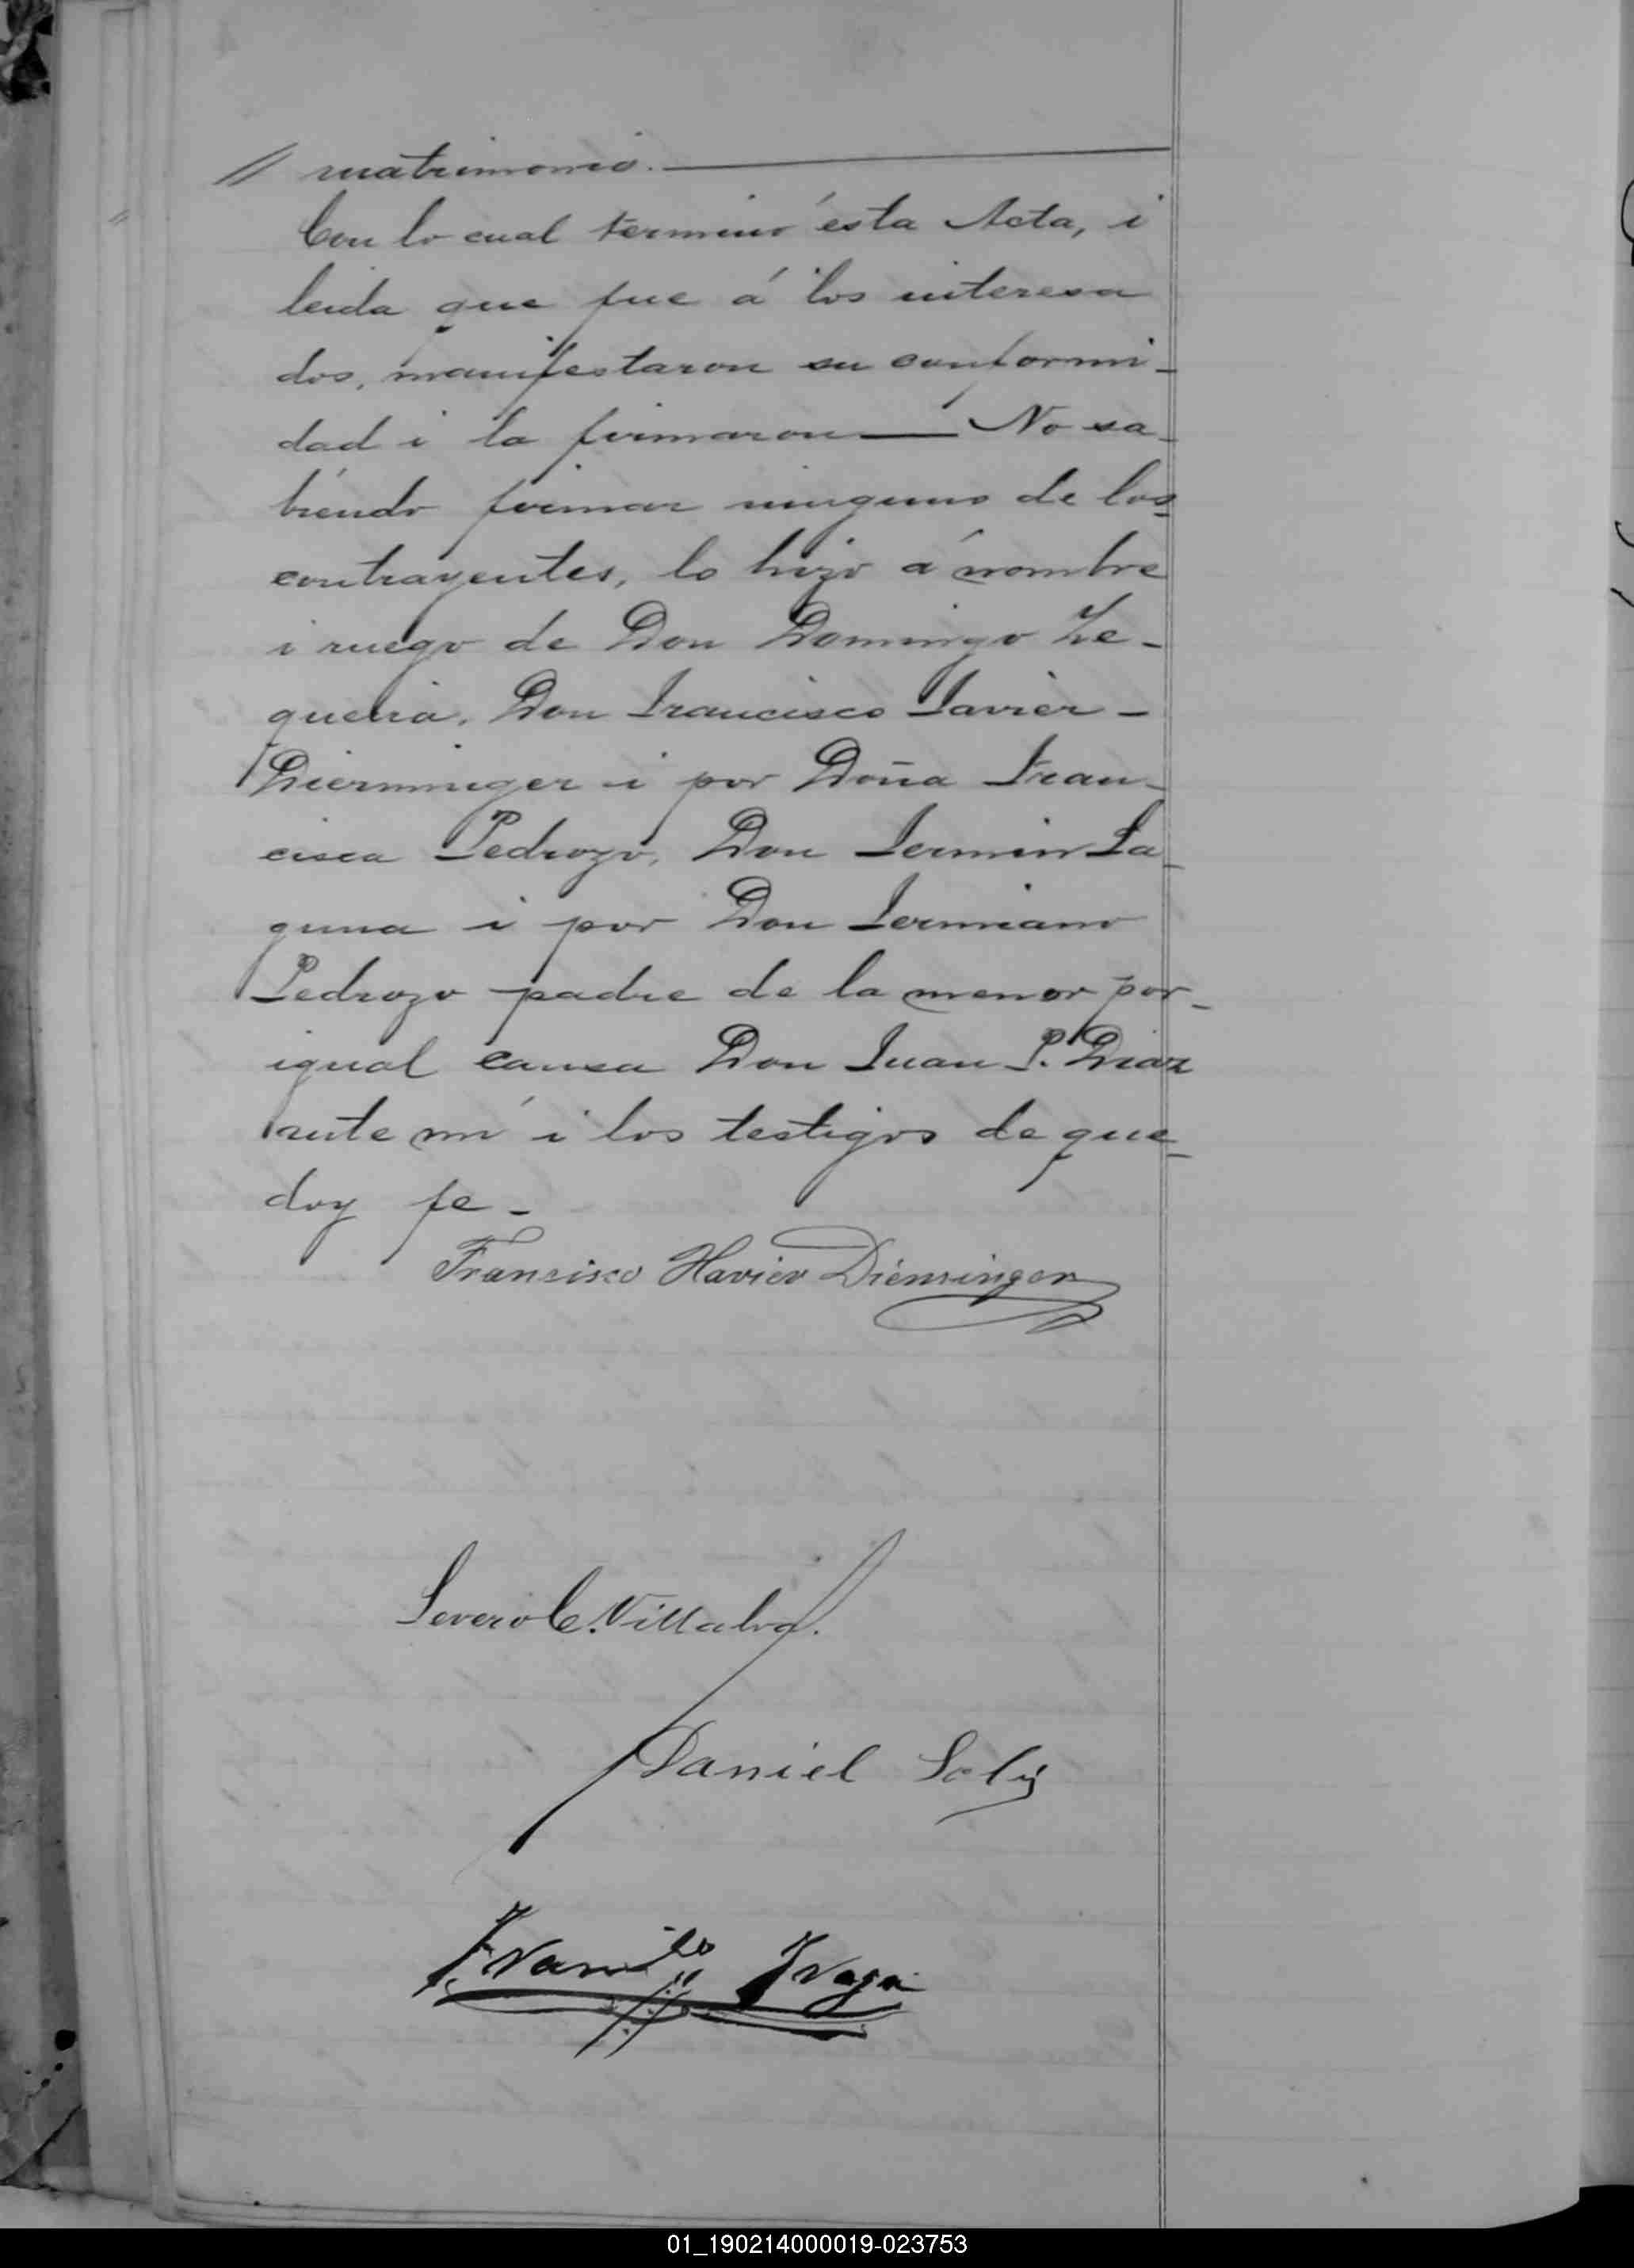 // matrimonio.
Con lo cual terminó esta Acta, i
leida que fue á los interesa
dos, manifestaron su conformi-
dad i la firmaron — No sa-
biendo firmar ninguno de los
contrayentes, lo hizo á nombre
i ruego de Don Domingo Ze-
queira, Don Francisco Javier-
Dierminger i por Doña Fran-
cisca Pedrozo, Don Fermin La
guna i por Don Fermiano
Pedrozo padre de la menor por-
igual causa Don Juan P. Diaz
ante mí i los testigos de que
doy fe-
Francisco Havier Diensinger
Severo C. Villalva.
Daniel Solis
01_190214000019-023753